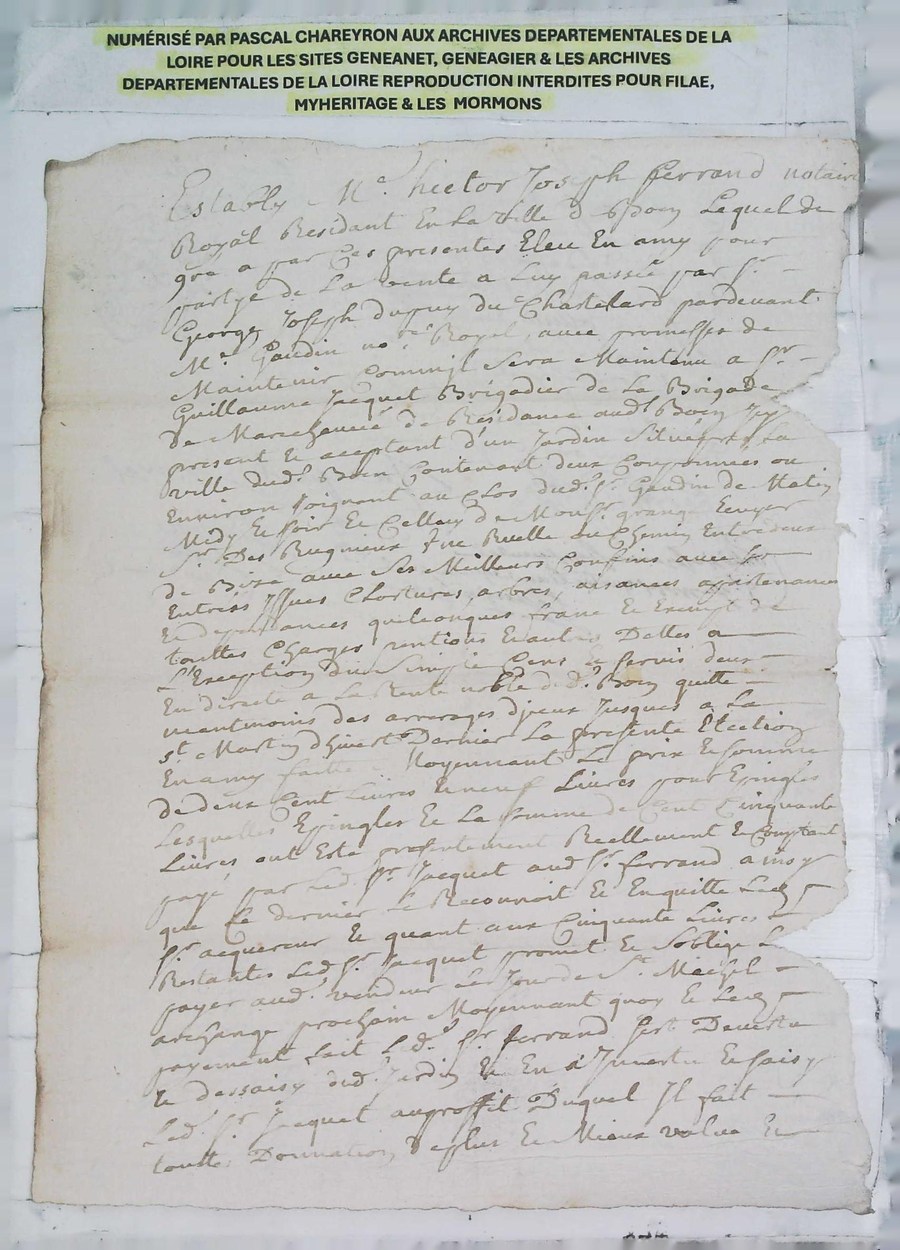 NUMÉRISÉ PAR PASCAL CHAREYRON AUX ARCHIVES DEPARTEMENTALES DE LA
LOIRE POUR LES SITES GENEANET, GENEAGIER & LES ARCHIVES
DEPARTEMENTALES DE LA LOIRE REPRODUCTION INTERDITES POUR FILAE,
MYHERITAGE & LES MORMONS
Estably Me. hictor Joseph ferrand notaire
Royal Residant En La ville d Boen Lequel de
gré a par Ces presentes Eleu En amy pour
partye de La vente a Luy passée par Sr.
George Joseph dupuy du Chastelard pardevant
Me. Gaudin nore. Royal, avec promesse de
Maintenir comm'il Sera Maintenu a Sr.
Guillaume Jacquet Brigadier de La Brigade
de Marechaucé de Residance aud. Boen Icy
present Et aceptant d'un Jardin Situé La
ville dud. Boen Contenant deux Couponnées ou
Environ Joignant au Clos dud. Sr. Gaudin de Matin
Midy Et soir Et Celluy de Monsr. grange Ecuyer
Sr. Des Rugnieux Une Ruelle ou Chemin Entredeux
de Bize avec Ses Meilleurs Confins avec
Entrées Issues Clostures, arbres, aisances appartenances
Et dependances quelconques franc Et Exempt de
touttes Charges pentions Et autres Dettes a
L'Exception du Simple Cens Et servis deux
En directe a La Rente noble d. d. Boen quitte
neantmoins des arrerages d'jceux Jusques a La
St. Martin d'hivert Dernier La presente Election
En amy faitte Moyennant Le prix Et somme
de deux Cent Livres Et neuf Livres pour Epingles
Lesquelles Epingles Et La somme de Cent Cinquante
Livres ont Esté presentement Reellement Et Comptant
payé par Led. Sr. Jacquet aud Sr. ferrand ainsy
que Ce dernier Le Reconnoit Et En quitte Led.
Sr. acquereur Et quant aux Cinquante Livres
Restantes Led. Sr. Jacquet promet Et S'oblige
payer aud. vendeur Le Jour de St. Michel
archange prochain Moyennant quoy Et Led.
payement fait Led. Sr ferrand s'est Devestu
Et dessaisy dud. Jardin Et En a Investu Et saisy
Led. Sr. Jacquet au proffit Duquel Il fait
toutte Donnation, de plus Et Mieux value Et